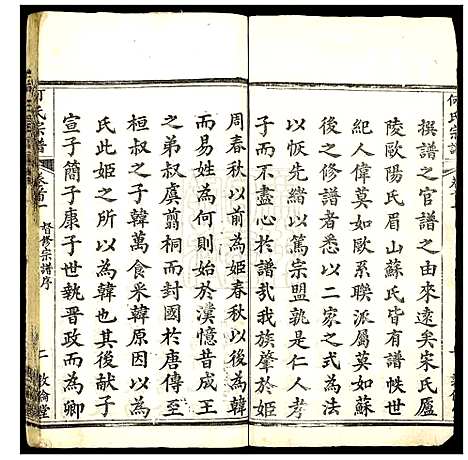 何氏宗譜
撰譜之官譜之由來遠矣宋氏廬
陵歐陽氏眉山蘇氏皆有譜帙世
紀人倫莫如歐系聯派屬莫如蘇
後之修譜者悉以二家之式為法
以恢先緒以篤宗盟孰是仁人孝
子而不盡心於譜哉我族肇於姬
周春秋以前為姬春秋以後為韓
而易姓為何則始於漢憶昔成王
之弟叔虞翦桐而封國於唐傳至
桓叔之子韓萬食采韓原因以為
氏此姬之所以為韓也其後獻子
宣子簡子康子世執晉政而為卿
何氏宗譜
卷首
督修宗譜序
二
敦倫堂